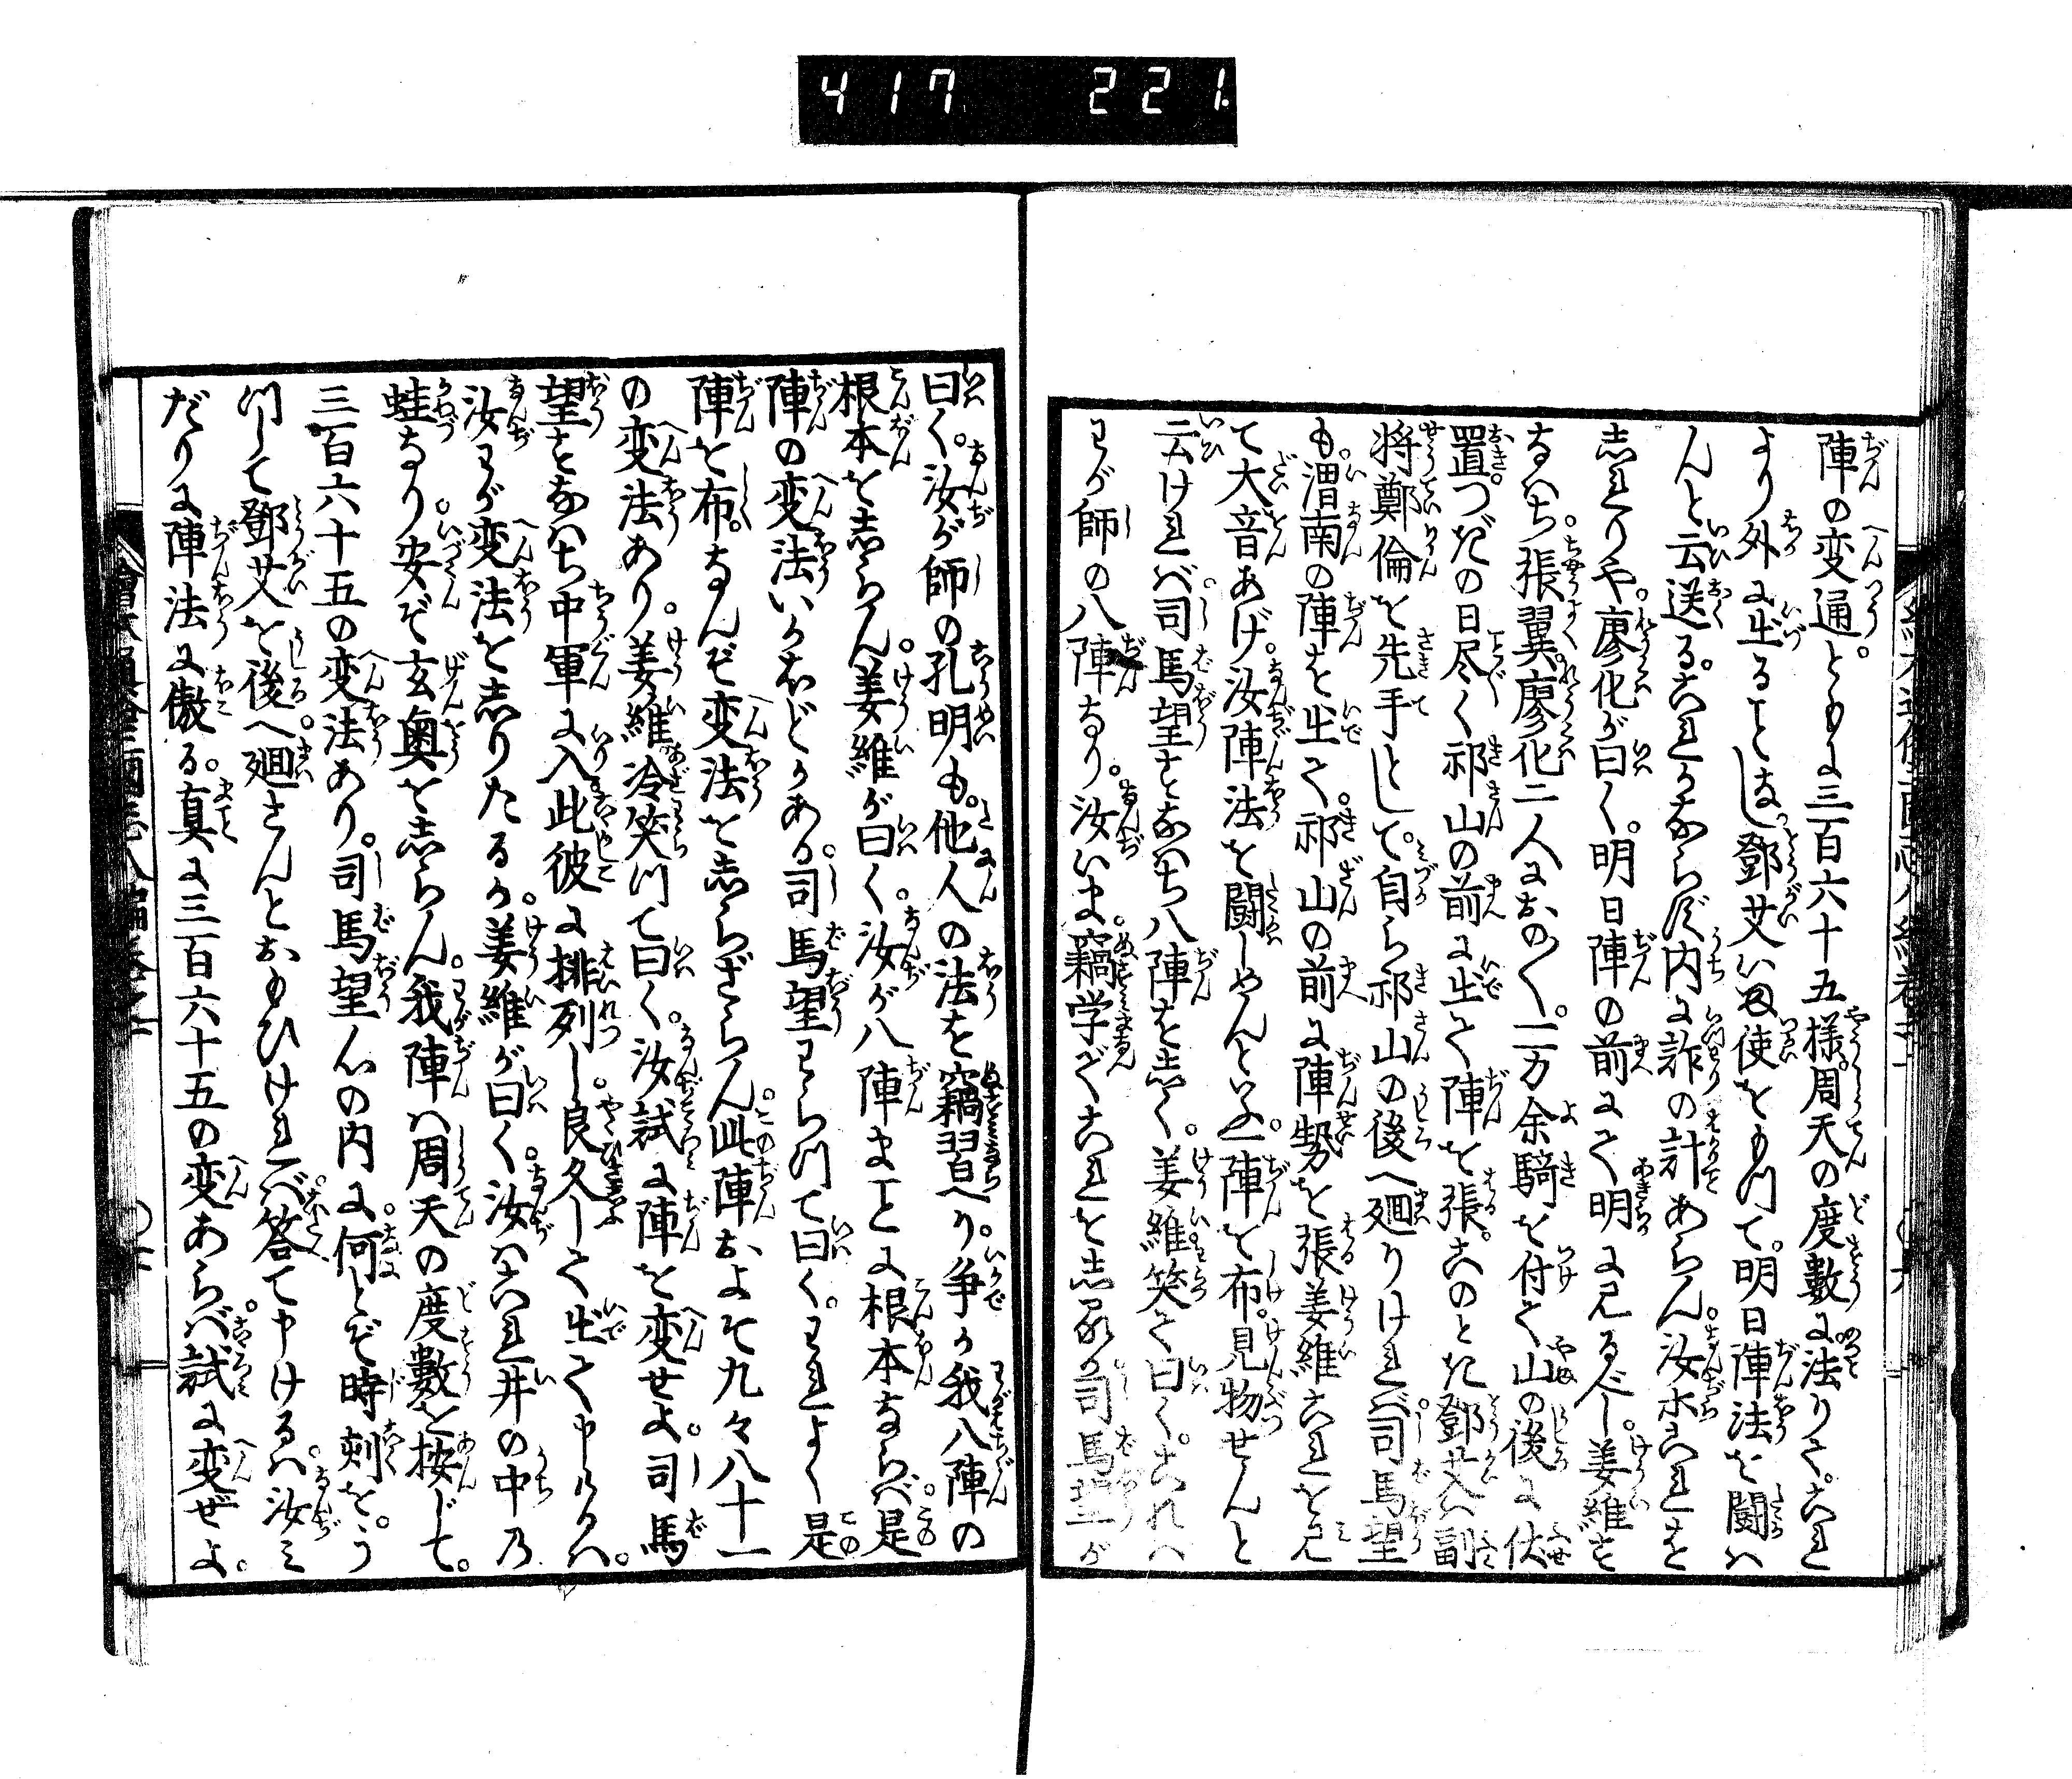 417 221
陣の変通。ともに三百六十五様。周天の度数に法りて。これ
より外に出ることはし。鄧艾いま使をもつて。明日陣法を闘は
んと云送る。これかならず内に詐の計あらん。汝ホこれを
しれりや。廖化が曰く。明日陣の前にて明に見るべし。姜維す
なはち。張翼。廖化二人におの〱。一万余騎を付て山の後に伏
置。つぎの日尽く祁山の前に出て陣を張。このとき鄧艾ハ副
将鄭倫を先手として。自ら祁山の後へ廻りければ。司馬望
も。渭南の陣を出て。祁山の前に陣勢を張。姜維これを見
て大音あげ。汝陣法を闘しめんといふ。一陣を布。見物せんと
云ければ。司馬望すなはち八陣をしく。姜維笑て曰く。これハ
わが師の八陣なり。汝いま。竊学でこれをしる。司馬望が
曰く。汝が師の孔明も。他人の法を竊習へり。争か我八陣の
根本をしらん。姜維が曰く。汝が八陣まことに根本ならば。是
陣の変法いかほどかある。司馬望わらつて曰く。われよく是
陣を布。なんぞ変法をしらざらん。此陣およそ九々八十一
の変法あり。姜維冷笑つて曰く。汝試に陣を変せよ。司馬
望すなはち中軍に入此彼に排列し。良久して出て申けるハ。
汝わが変法をしりたるか。姜維が曰く。汝ハこれ井の中乃
蛙なり。安ぞ玄奥をしらん。我陣ハ周天の度数を按じて。
三百六十五の変法あり。司馬望心の内に。何とぞ時刻を。う
つして鄧艾を後へ廻さんとおもひければ。答て申けるハ。汝ミ
だりに陣法に傲る。真に三百六十五の変あらば。試に変ぜよ。